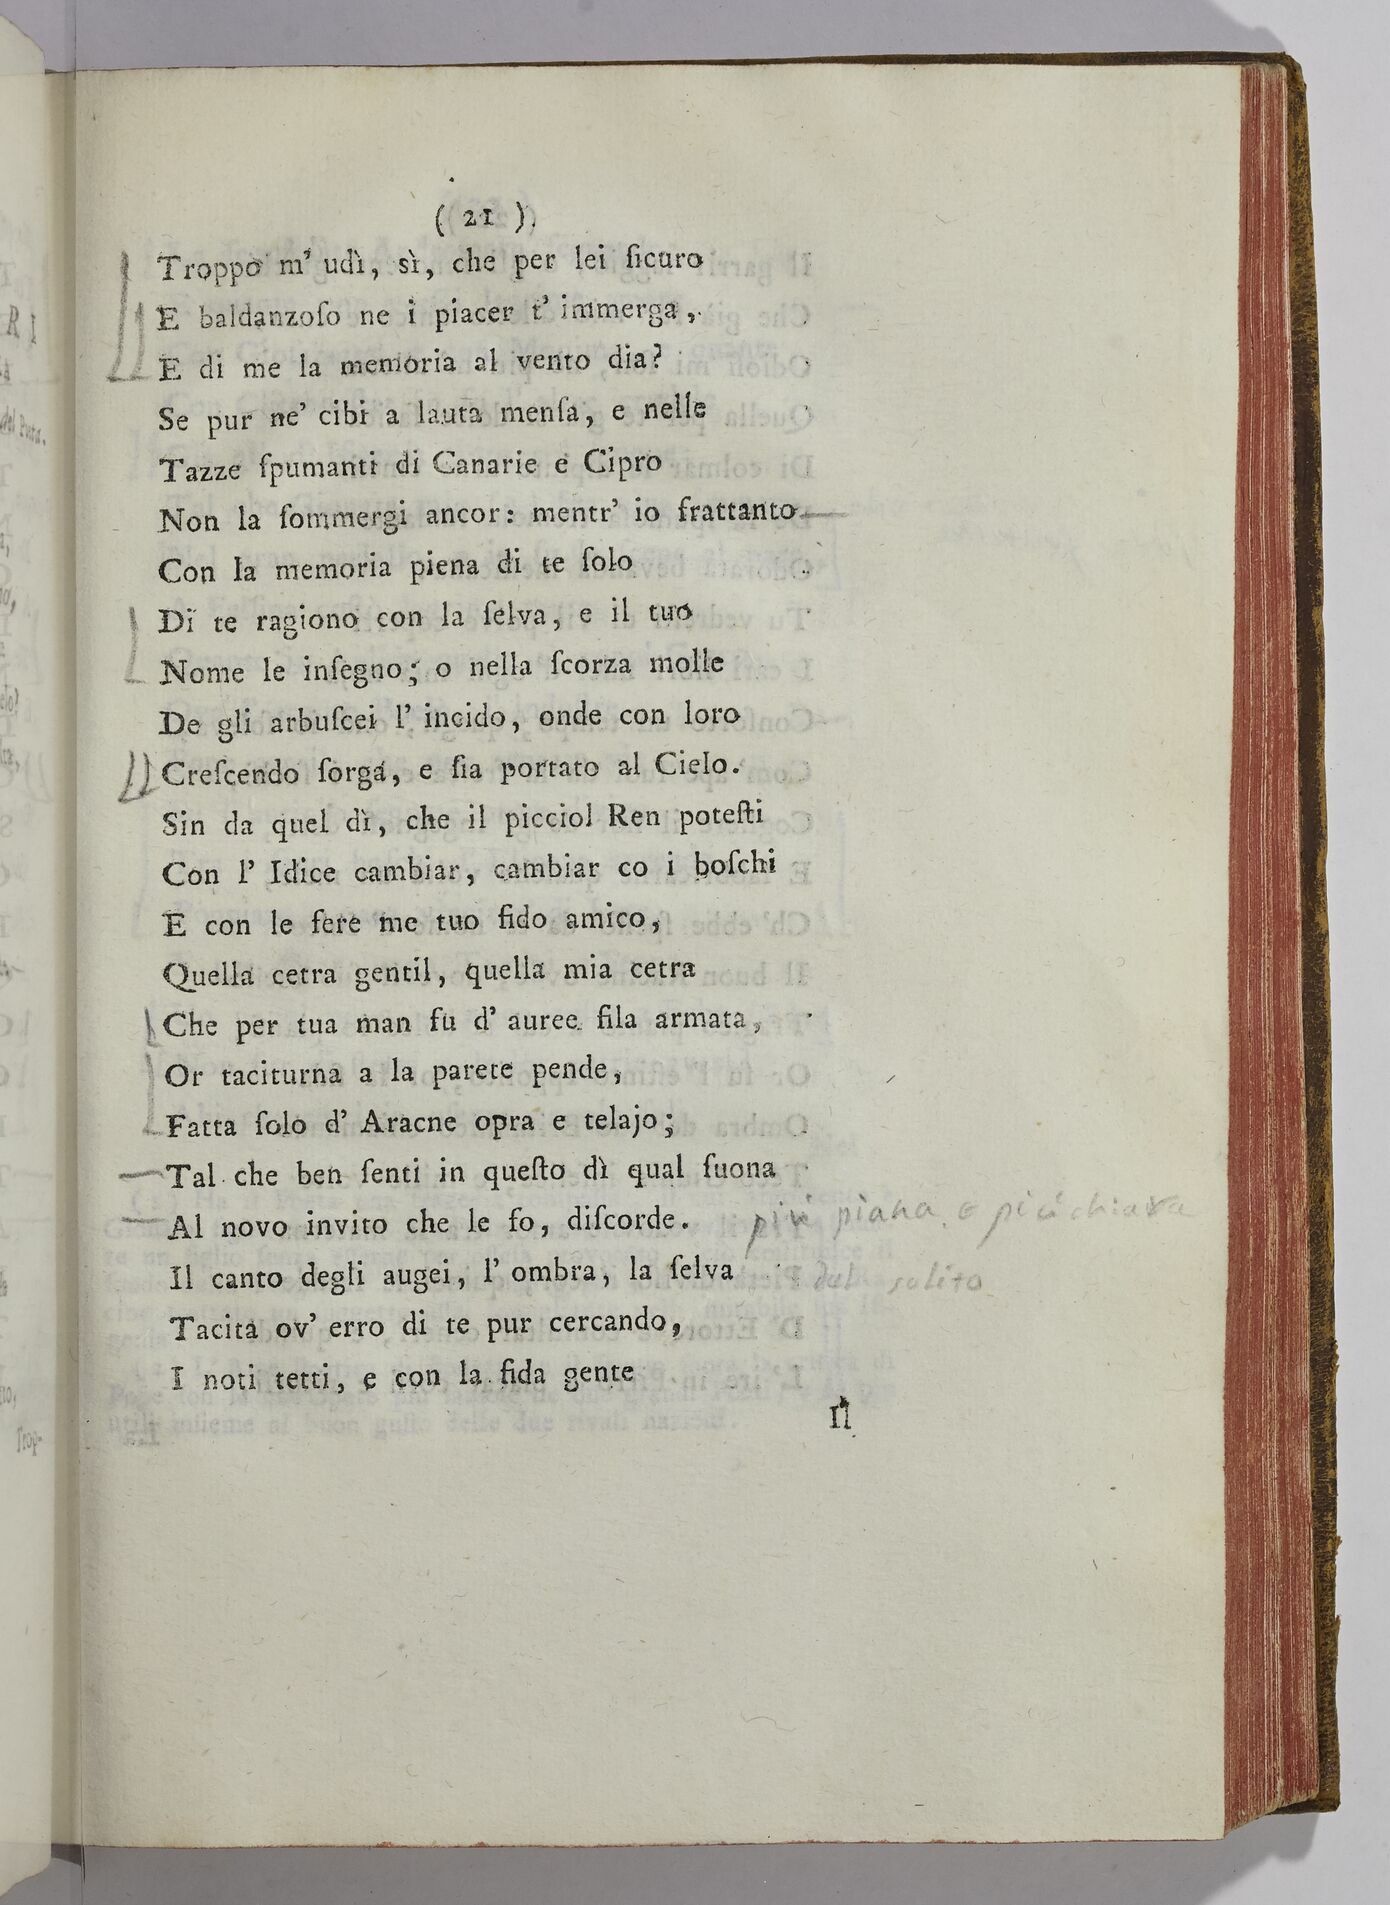 ( 21 )
Troppo m' udì, sì, che per lei ſicuro
E baldanzoſo ne i piacer t' immerga,
E di me la memoria al vento dia?
Se pur ne' cibi a lauta menſa, e nelle
Tazze ſpumanti di Canarie e Cipro
Non la ſommergi ancor: mentr' io frattanto
Con la memoria piena di te ſolo
Di te ragiono con la ſelva, e il tuo
Nome le inſegno; o nella ſcorza molle
De gli arbuſcei l' incido, onde con loro
Creſcendo ſorga, e ſia portato al Cielo.
Sin da quel dì, che il picciol Ren poteſti
Con l' Idice cambiar, cambiar co i boſchi
E con le fere me tuo fido amico,
Quella cetra gentil, quella mia cetra
Che per tua man fu d' auree fila armata,
Or taciturna a la parete pende,
Fatta ſolo d' Aracne opra e telajo;
Tal che ben ſenti in queſto dì qual ſuona
Al novo invito che le fo, diſcorde.
più piana e più chiara
Il canto degli augei, l' ombra, la ſelva
del solito
Tacita ov' erro di te pur cercando,
I noti tetti, e con la fida gente
Il